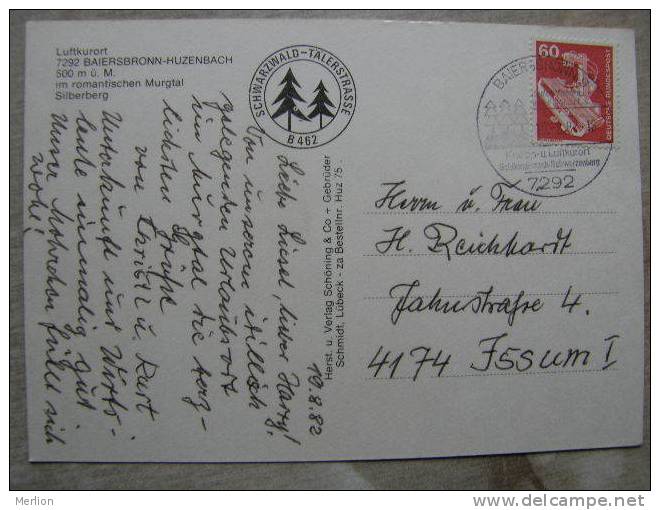 Luftkurort
7292 BAIERSBRONN-HUZENBACH
500 m ü. M.
im romantischen Murgtal
Silberberg
SCHWARZWALD-TÄLERSTRASSE
B 462
60
DEUTSCHE BUNDESPOST
BAIERSBRONN
u. Luftkurort
7292
Herst. u. Verlag Schöning & Co + Gebrüder
Schmidt, Lübeck - za Bestellnr. Huz 75
19.8.82
Liebe Liesel, lieber Harry!
Von unserem idyllisch
gelegenen Urlaubsort
im Murgtal die herz-
lichsten Grüße
von Christl u. Kurt
Unterkunft und Wirts-
leute einmalig gut
Unser fühlt sich
wohl!
Herrn u. Frau
H. Reichhardt
Jahnstraße 4.
4174 Issum I
Merlion
delcampe.net